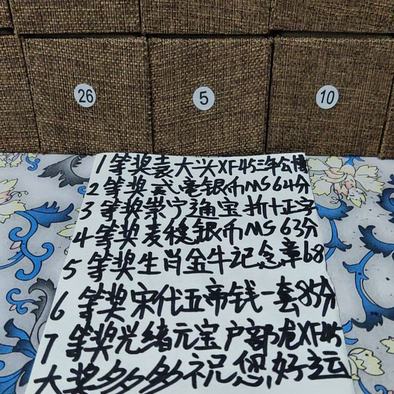 26 5 10
1等奖袁大头XF45三年公博
2等奖贰毫银币MS64分
3等奖崇宁通宝折十正字
4等奖麦穗银币MS63分
5等奖生肖金牛记念章68
6等奖宋代五帝钱一套85分
7等奖光绪元宝户部龙XF45
大奖多多多祝您好运